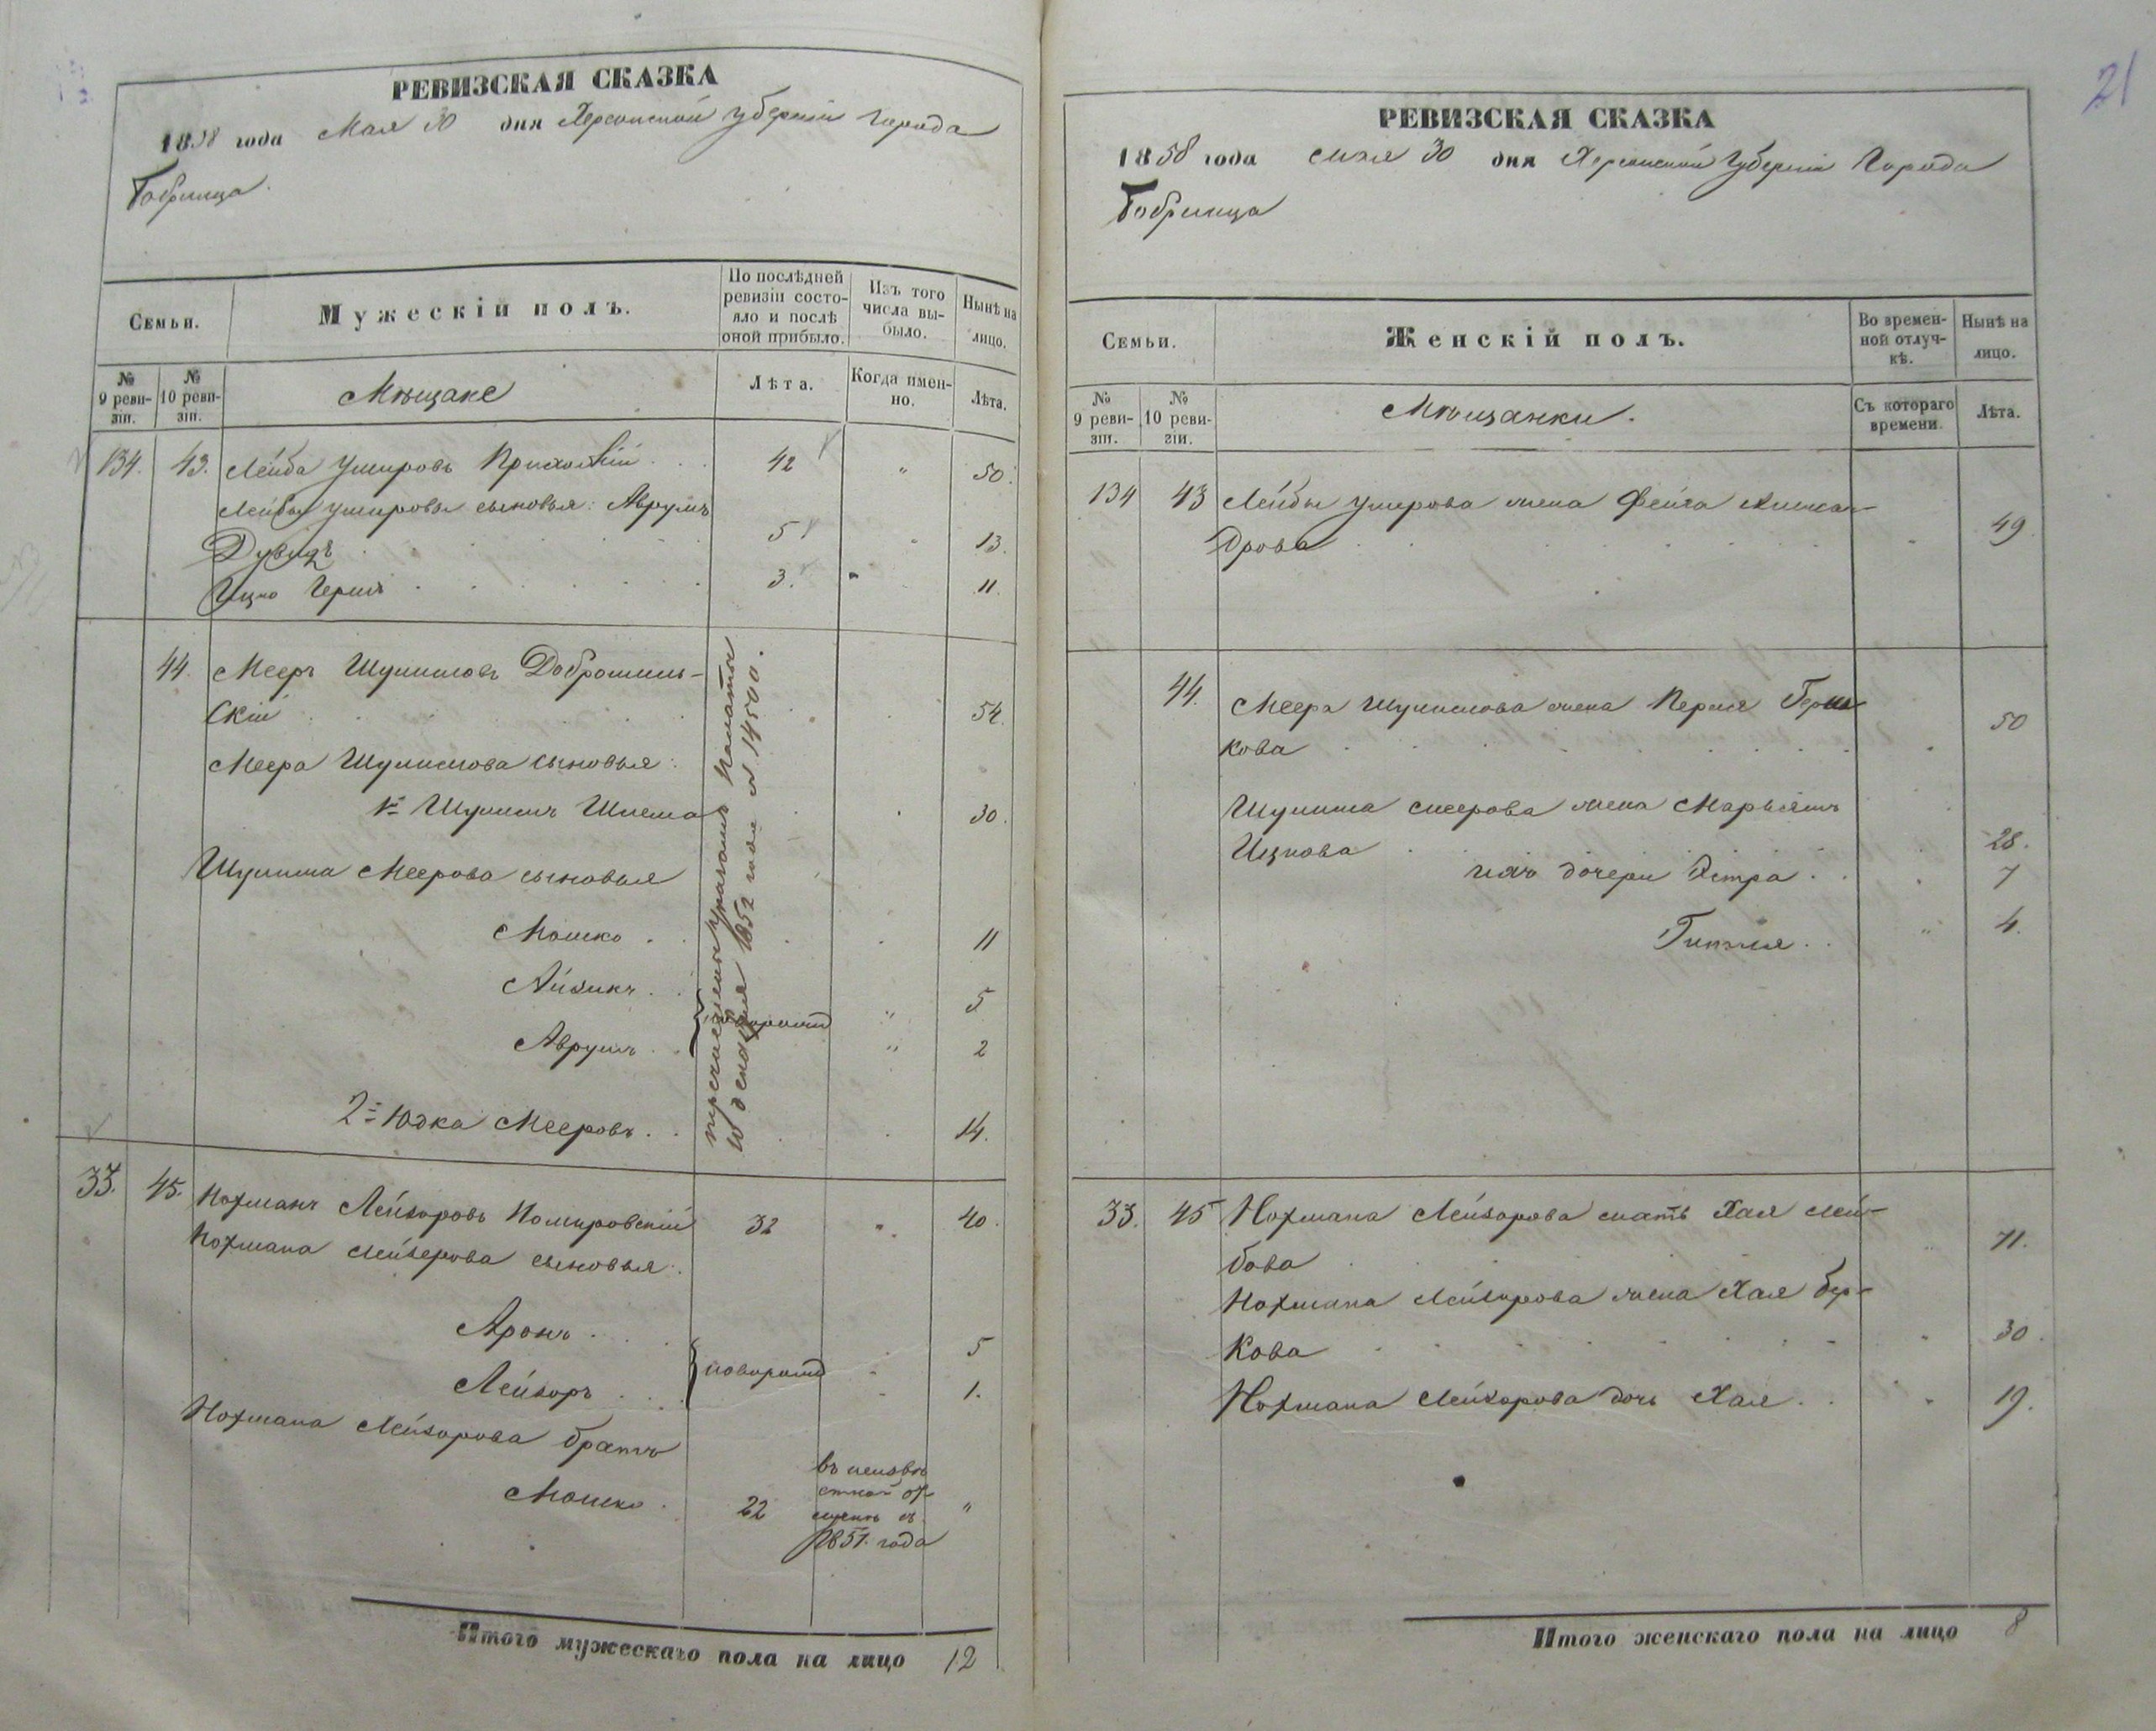 21
РЕВИЗСКАЯ СКАЗКА
1858 года Мая 30 дня Херсонской Губерніи Города
Бобринца
Семьи.
Мужескій полъ.
По послѣдней ревизіи состояло и послѣ оной прибыло.
Изъ того числа выбыло.
Нынѣ на лицо.
№ 9 ревизіи.
№ 10 ревизіи.
Мѣщане
Лѣта.
Когда именно.
Лѣта.
134. 43. Лейба Умеровъ 42 " 50.
Лейбы Умерова сыновья: Аврумъ
Дувидъ 5 " 13.
Ицко Гершъ 3. " 11.
44. Мееръ Шулимовъ Доброшинь-
скій 54.
Меера Шулимова сыновья:
1й Шулимъ Шлема 30.
Шулима Меерова сыновья
Мошко 11
Айзикъ 5
новорожд
Аврумъ " 2
2й Юдка Мееровъ 14.
перечислены Указомъ Палаты
10 декабря 1852 года № 14500.
33. 45. Нохманъ Лейзоровъ Немировскій 32 " 40.
Нохмана Лейзерова сыновья:
Аронъ 5
новорожд
Лейзоръ 1.
Нохмана Лейзорова братъ
Мошко 22 въ неизвѣ-
стной от-
лучкѣ съ "
1851. года
Итого мужескаго пола на лицо 12
РЕВИЗСКАЯ СКАЗКА
1858 года мая 30 дня Херсонской Губерніи Города
Бобринца
Семьи.
Женскій полъ.
Во временной отлучкѣ.
Нынѣ на лицо.
№ 9 ревизіи.
№ 10 ревизіи.
Мѣщанки.
Съ котораго времени.
Лѣта.
134 43 Лейбы Умерова жена Фейга
дрова 49
44. Меера Шулимова жена Перля Герш-
кова 50
Шулима Меерова жена Марьямъ
Ицкова 28.
ихъ дочери Эстра 7
Гитля " 4.
33. 45 Нохмана Лейзорова мать Хая Лей-
бова 71.
Нохмана Лейзорова жена Хая Бер-
кова 30.
Нохмана Лейзорова дочь Хая 19.
Итого женскаго пола на лицо 8